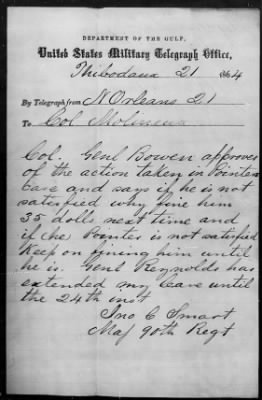 DEPARTMENT OF THE GULF,
United States Military Telegraph Office,
Thibodaux 21 1864
By Telegraph from N Orleans 21
To Col Molineux
Col. Genl Bowen approves
of the action taken in Pointer
Case and says if he is not
satisfied why fine him
35 dolls next time and
if the Pointer is not satisfied
Keep on fining him until
he is. Genl Reynolds has
extended my leave until
the 24th inst
Jno C Smart
Maj 90th Regt